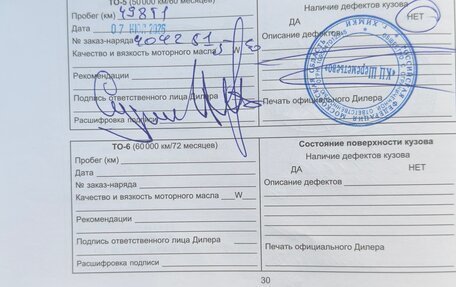 ТО-5 (50 000 км/60 месяцев)
Пробег (км)
Дата
№ заказ-наряда 404281
Качество и вязкость моторного масла W
Рекомендации
Подпись ответственного лица Дилера
Расшифровка подписи
Наличие дефектов кузова
ДА НЕТ
Описание дефектов
«КЦ Шереметьево»
г. ХИМКИ
Печать официального Дилера
ТО-6 (60 000 км/72 месяцев)
Пробег (км)
Дата
№ заказ-наряда
Качество и вязкость моторного масла W
Рекомендации
Подпись ответственного лица Дилера
Расшифровка подписи
Состояние поверхности кузова
Наличие дефектов кузова
ДА НЕТ
Описание дефектов
Печать официального Дилера
30